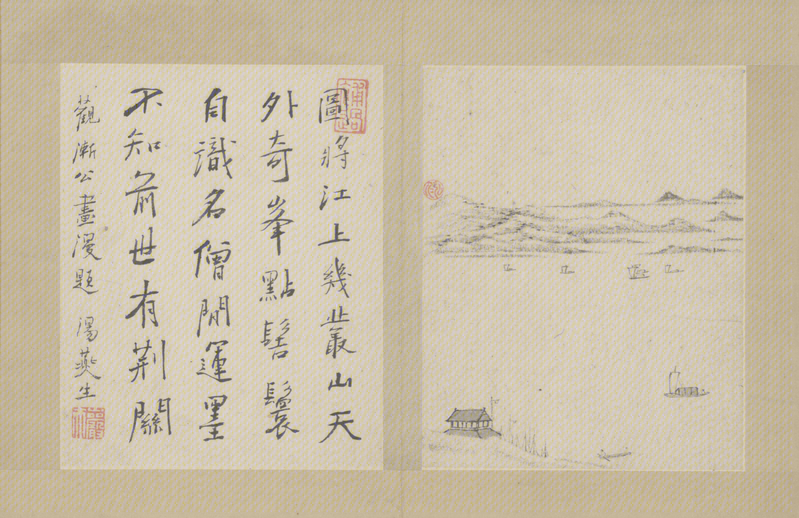 圖將江上幾叢山天
外奇峯點髻鬟
自識名僧閒運墨
不知前世有荆關
觀漸公畫漫題 湯燕生